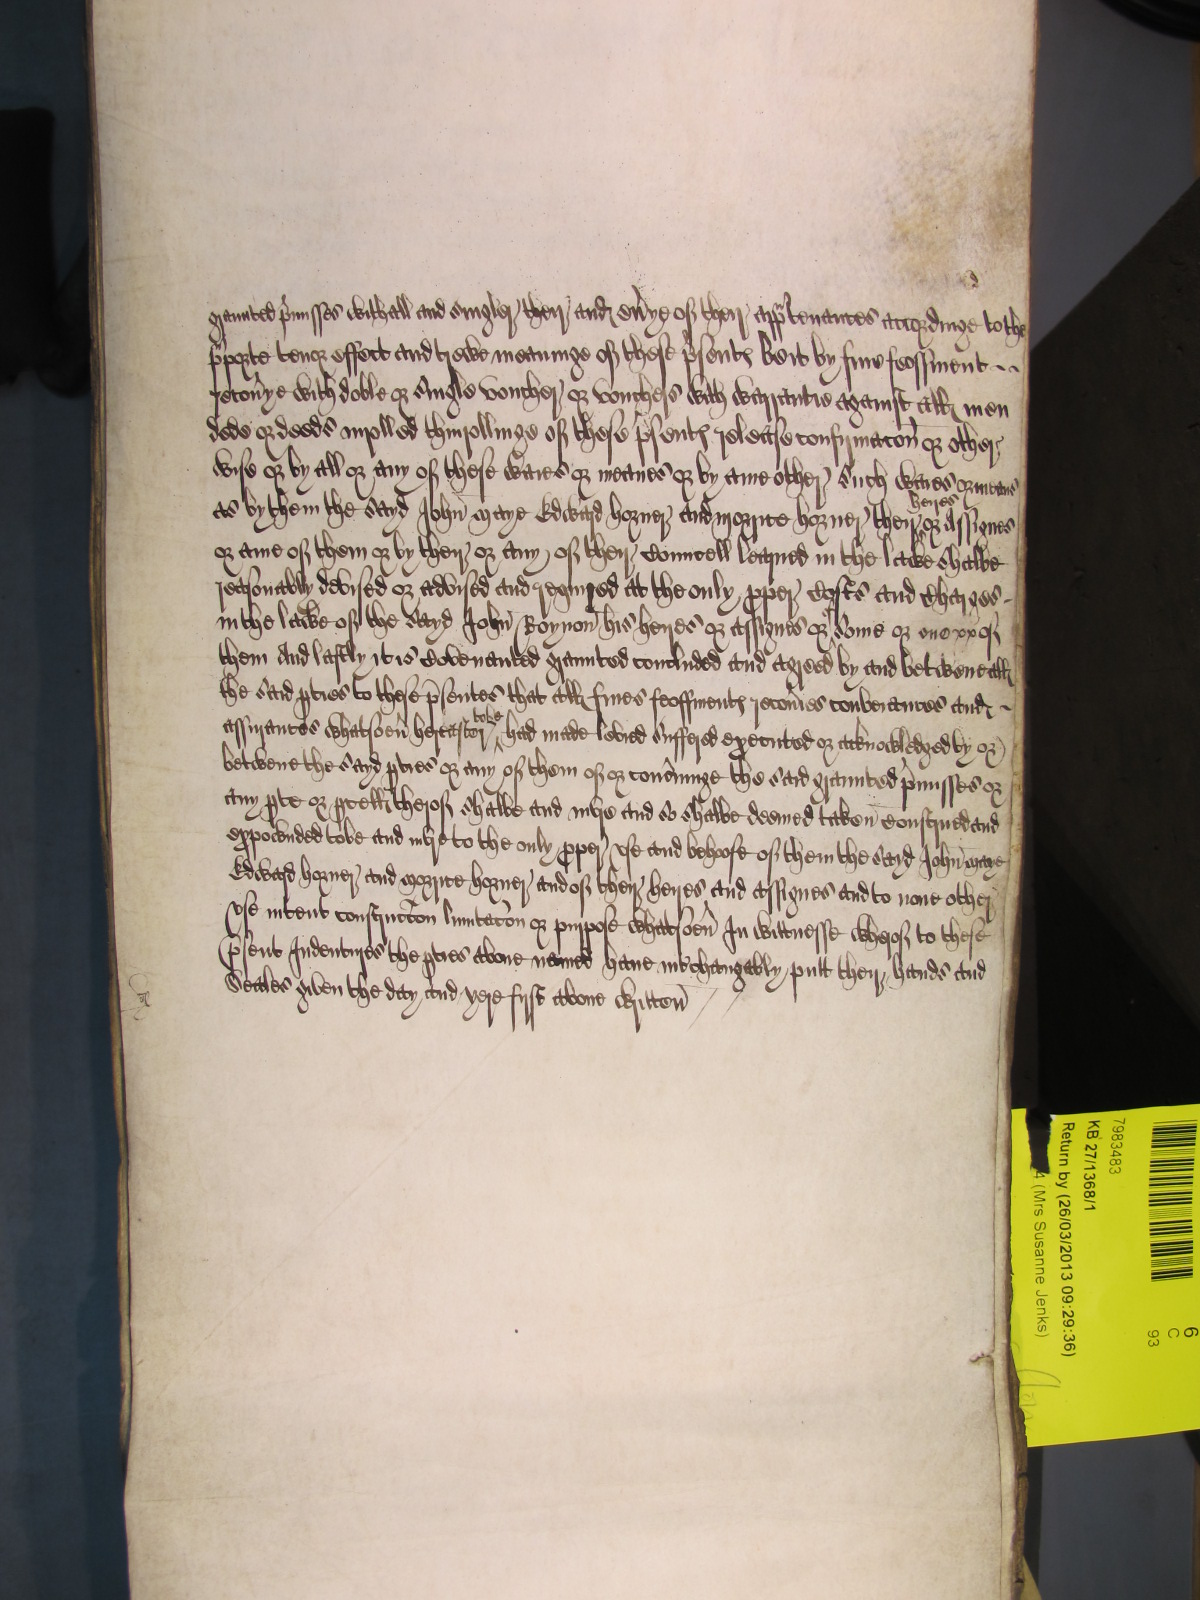 graunted p'misses withall and singler their and ev'ye of their app'tenances accordinge to the
p'porte tenor effect and trewe meaninge of these p'sentes be it by fine feoffment
recov'ye with doble or single voucher or vouchers with warrantie against all men
dede or deeds inrolled thinrollinge of these p'sentes release confirmacon or other
wise or by all or any of these waies or meanes or by anie other such waies or meanes
as by them the sayd John Maye Edward Horner and Morrice Horner their heires or Assignes
or anie of them or by their or any of their Councell learned in the lawe shalbe
reasonably devised or advised and required at the only proper Costes and Charges
in the lawe of the sayd John Boynon his heires or assignes or some or one of
them And lastly it is Covenanted graunted concluded and agreed by and betwene all
the said pties to these p'sentes that all fines feoffmentes recov'ies conveiances and
assurances whatsoev' hereafter tobe had made levied suffered executed or acknowledged by or
betwene the sayd pties or any of them of or conc'ninge the said graunted p'misses or
any pte or pcell therof shalbe and inure and so shalbe deemed taken Construed and
expownded tobe and inure to the only proper use and behoofe of them the sayd John Maye
Edward Horner and Morrice Horner and of their heires and assignes and to none other
use intent construccon limitacon or purpose whatsoev' In wittnesse wherof to these
p'sent Indentures the pties above named have interchangably putt their hands and
Seales given the day and yere first above written
7983483
KB 27/1368/1
Return by (26/03/2013 09:29:36)
4 (Mrs Susanne Jenks)
6
C
93